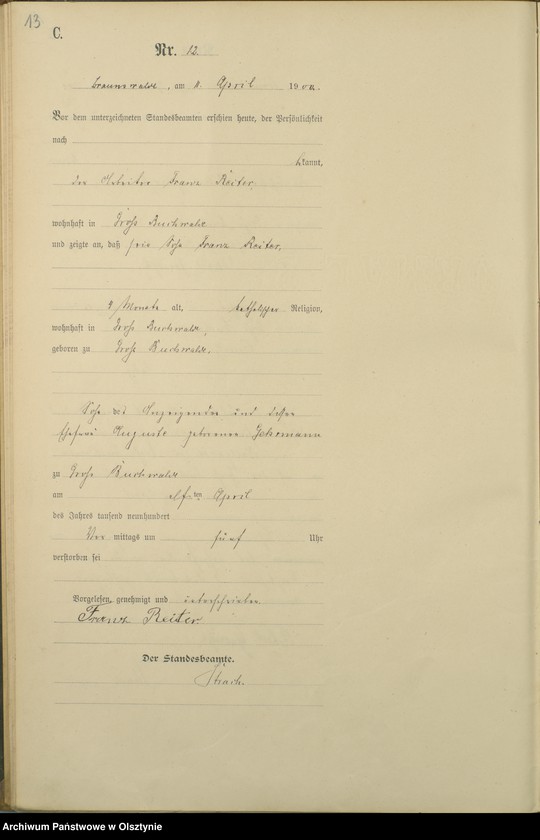 13
C.
Nr. 12.
Braunswalde, am 11. April 1900.
Vor dem unterzeichneten Standesbeamten erschien heute, der Persönlichkeit
nach
bekannt,
der Arbeiter Franz Reiter
wohnhaft in Groß Buchwalde
und zeigte an, daß sein Sohn Franz Reiter,
Monate alt, katholischer Religion,
wohnhaft in Groß Buchwalde,
geboren zu Groß Buchwalde,
Sohn des Anzeigenden und dessen
Ehefrau Auguste geborenen
zu Groß Buchwalde
am elften April
des Jahres tausend neunhundert
Vor mittags um fünf Uhr
verstorben sei
Vorgelesen, genehmigt und unterschrieben
Franz Reiter.
Der Standesbeamte.
Archiwum Państwowe w Olsztynie